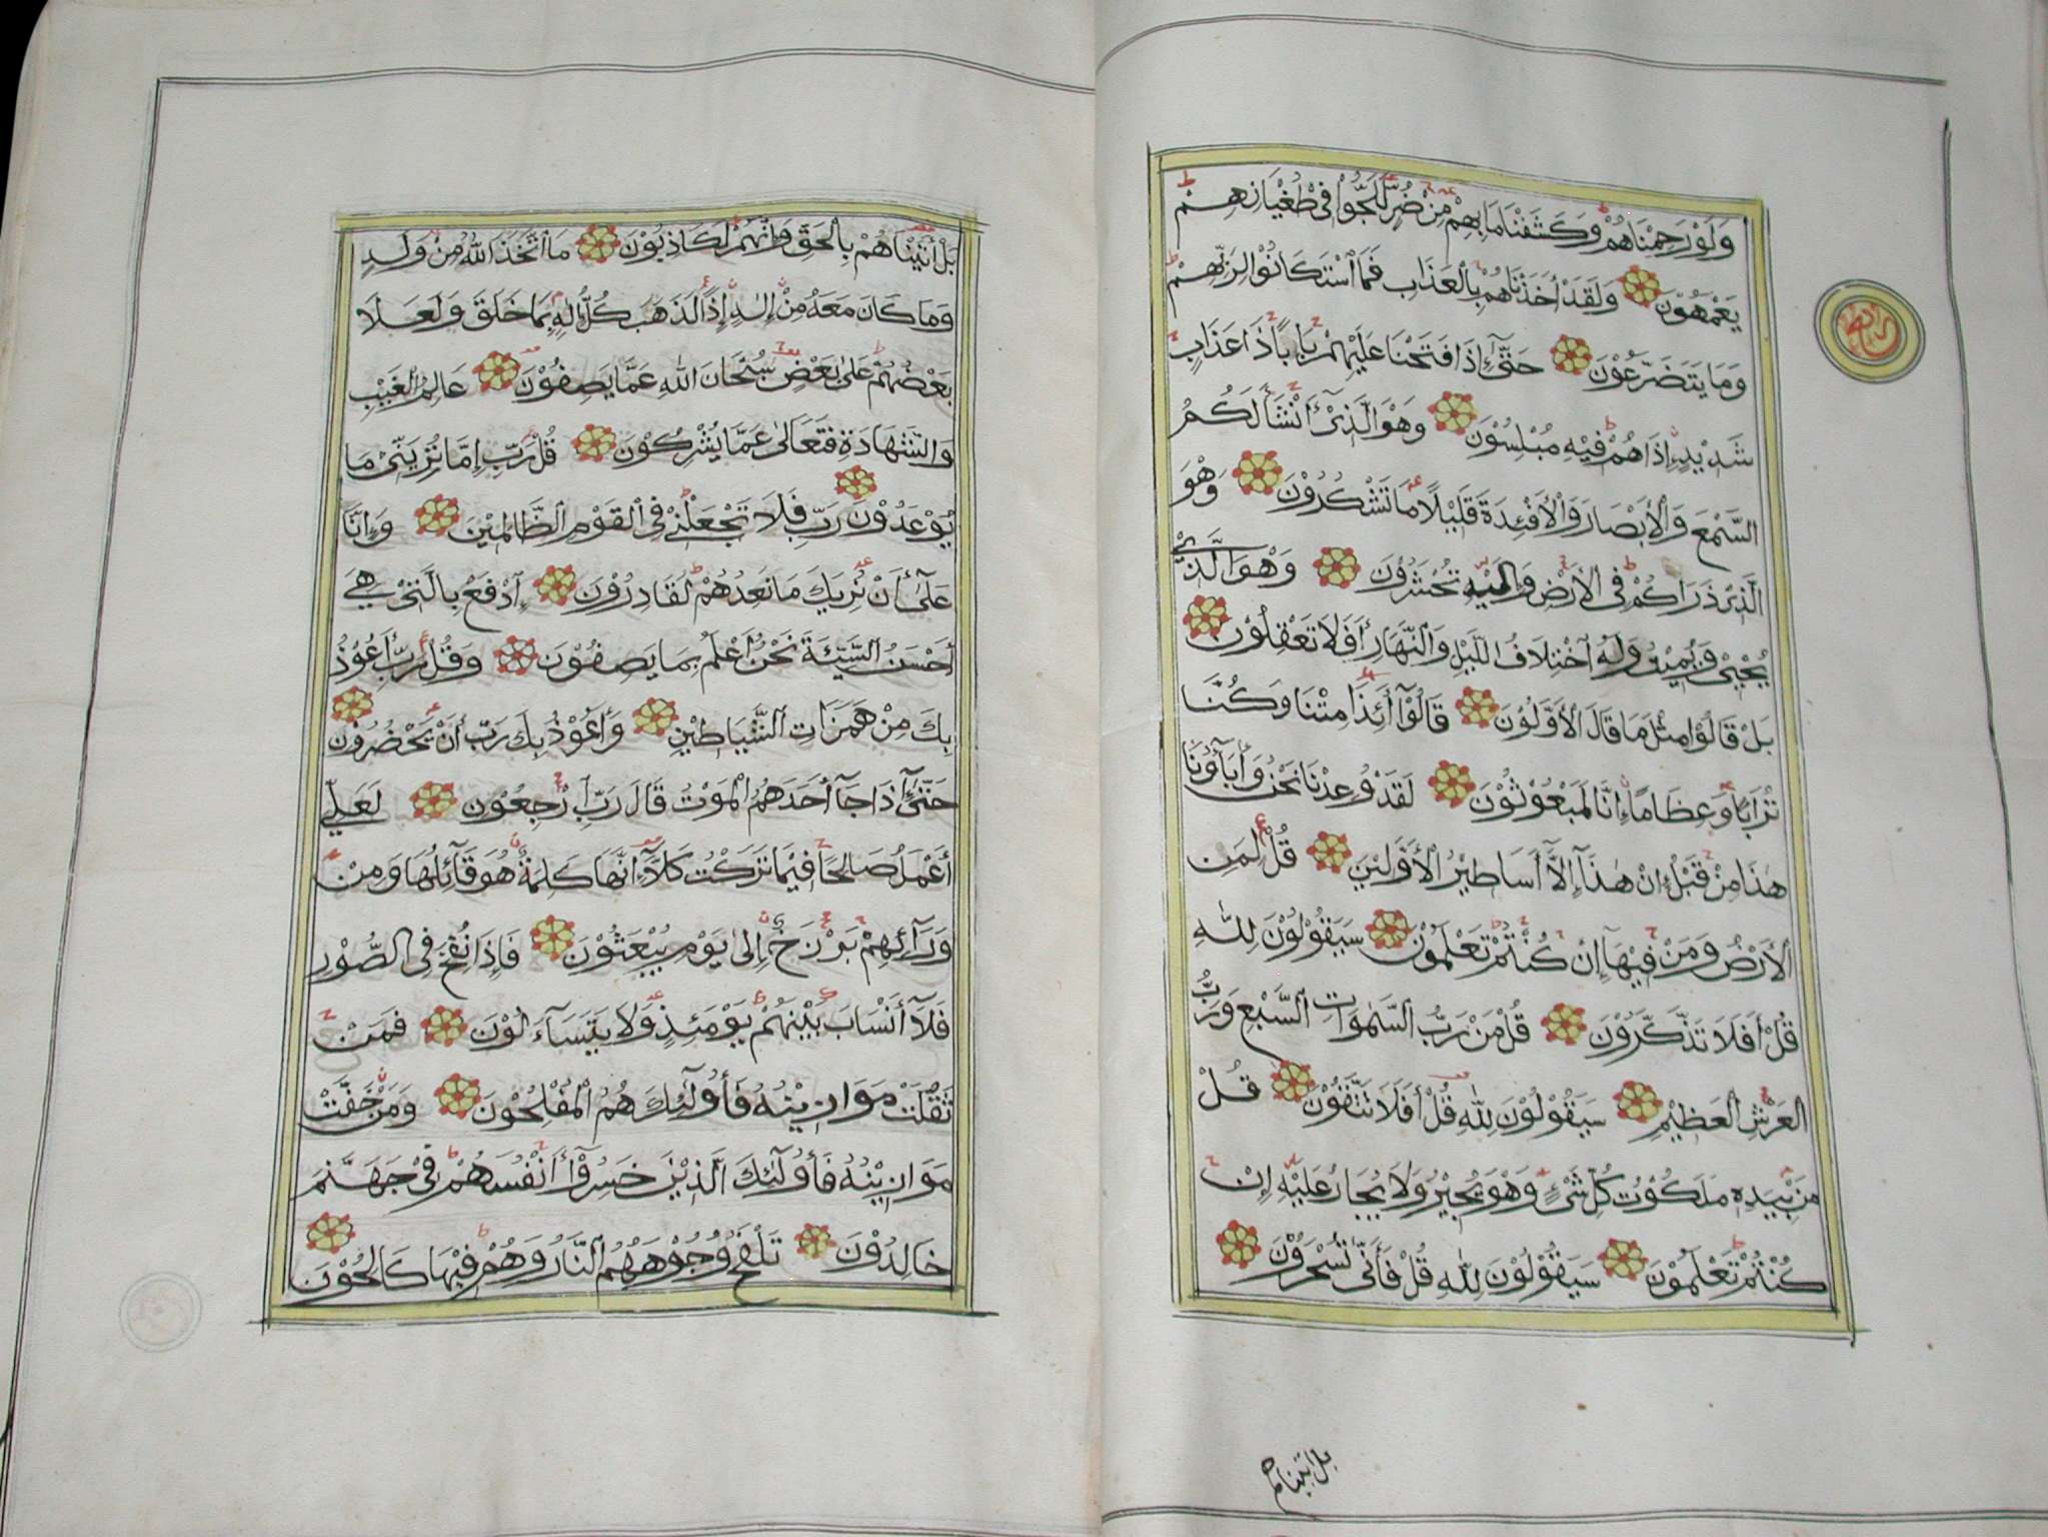 وَلَوْ رَحِمْنَاهُمْ وَكَشَفْنَا مَا بِهِمْ مِنْ ضُرٍّ لَلَجُّوْا فِى طُغْيَانِهِمْ
يَعْمَهُوْنَ وَلَقَدْ أَخَذْنَاهُمْ بِالْعَذَابِ فَمَا اسْتَكَانُوْا لِرَبِّهِمْ
وَمَا يَتَضَرَّعُوْنَ حَتَّىٰ إِذَا فَتَحْنَا عَلَيْهِمْ بَابًا ذَا عَذَابٍ
شَدِيْدٍ إِذَا هُمْ فِيْهِ مُبْلِسُوْنَ وَهْوَ الَّذِىْ أَنْشَأَ لَكُمُ
السَّمْعَ وَالْأَبْصَارَ وَالْأَفْئِدَةَ قَلِيْلًا مَا تَشْكُرُوْنَ وَهْوَ
الَّذِىْ ذَرَاكُمْ فِى الْأَرْضِ وَإِلَيْهِ تُحْشَرُوْنَ وَهْوَ الَّذِىْ
يُحْيِىْ وَيُمِيْتُ وَلَهُ اخْتِلَافُ اللَّيْلِ وَالنَّهَارِ أَفَلَا تَعْقِلُوْنَ
بَلْ قَالُوْا مِثْلَ مَا قَالَ الْأَوَّلُوْنَ قَالُوْآ أَئِذَا مِتْنَا وَكُنَّا
تُرَابًا وَعِظَامًا إِنَّا لَمَبْعُوْثُوْنَ لَقَدْ وُعِدْنَا نَحْنُ وَأَبَآؤُنَا
هٰذَا مِنْ قَبْلُ إِنْ هٰذَآ إِلَّآ أَسَاطِيْرُ الْأَوَّلِيْنَ قُلْ لِمَنِ
الْأَرْضُ وَمَنْ فِيْهَآ إِنْ كُنْتُمْ تَعْلَمُوْنَ سَيَقُوْلُوْنَ لِلّٰهِ
قُلْ أَفَلَا تَذَّكَّرُوْنَ قُلْ مَنْ رَبُّ السَّمٰوَاتِ السَّبْعِ وَرَبُّ
الْعَرْشِ الْعَظِيْمِ سَيَقُوْلُوْنَ لِلّٰهِ قُلْ أَفَلَا تَتَّقُوْنَ قُلْ
مَنْ بِيَدِهِ مَلَكُوْتُ كُلِّ شَىْءٍ وَهْوَ يُجِيْرُ وَلَا يُجَارُ عَلَيْهِ إِنْ
كُنْتُمْ تَعْلَمُوْنَ سَيَقُوْلُوْنَ لِلّٰهِ قُلْ فَأَنّٰى تُسْحَرُوْنَ
بل اتيناهم
بَلْ أَتَيْنَاهُمْ بِالْحَقِّ وَإِنَّهُمْ لَكَاذِبُوْنَ مَا اتَّخَذَ اللهُ مِنْ وَلَدٍ
وَمَا كَانَ مَعَهُ مِنْ إِلٰهٍ إِذًا لَذَهَبَ كُلُّ إِلٰهٍ بِمَا خَلَقَ وَلَعَلَا
بَعْضُهُمْ عَلىٰ بَعْضٍ سُبْحَانَ اللهِ عَمَّا يَصِفُوْنَ عَالِمُ الْغَيْبِ
وَالشَّهَادَةِ فَتَعَالىٰ عَمَّا يُشْرِكُوْنَ قُلْ رَبِّ إِمَّا تُرِيَنِّىْ مَا
يُوْعَدُوْنَ رَبِّ فَلَا تَجْعَلْنِىْ فِى الْقَوْمِ الظَّالِمِيْنَ وَإِنَّا
عَلىٰٓ أَنْ نُرِيَكَ مَا نَعِدُهُمْ لَقَادِرُوْنَ اِدْفَعْ بِالَّتِىْ هِيَ
أَحْسَنُ السَّيِّئَةَ نَحْنُ أَعْلَمُ بِمَا يَصِفُوْنَ وَقُلْ رَبِّ أَعُوْذُ
بِكَ مِنْ هَمَزَاتِ الشَّيَاطِيْنِ وَأَعُوْذُ بِكَ رَبِّ أَنْ يَحْضُرُوْنِ
حَتّٰىٓ إِذَا جَآ أَحَدَهُمُ الْمَوْتُ قَالَ رَبِّ ارْجِعُوْنِ لَعَلِّي
أَعْمَلُ صَالِحًا فِيْمَا تَرَكْتُ كَلَّآ إِنَّهَا كَلِمَةٌ هُوَ قَآئِلُهَا وَمِنْ
وَرَآئِهِمْ بَرْزَخٌ إِلىٰ يَوْمِ يُبْعَثُوْنَ فَإِذَا نُفِخَ فِى الصُّوْرِ
فَلَآ أَنْسَابَ بَيْنَهُمْ يَوْمَئِذٍ وَلَا يَتَسَآءَلُوْنَ فَمَنْ
ثَقُلَتْ مَوَازِيْنُهُ فَأُولٰٓئِكَ هُمُ الْمُفْلِحُوْنَ وَمَنْ خَفَّتْ
مَوَازِيْنُهُ فَأُولٰٓئِكَ الَّذِيْنَ خَسِرُوْآ أَنْفُسَهُمْ فِىْ جَهَنَّمَ
خَالِدُوْنَ تَلْفَحُ وُجُوْهَهُمُ النَّارُ وَهُمْ فِيْهَا كَالِحُوْنَ